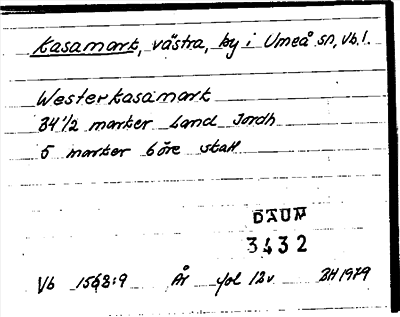 Kasamark, västra, by i Umeå sn, Vb.l.
Westerkasamark
34 1/2 marker Land Jordh
5 marker 6 öre skatt
DAUM
3432
Vb 1568:9 År fol 12v BH 1979